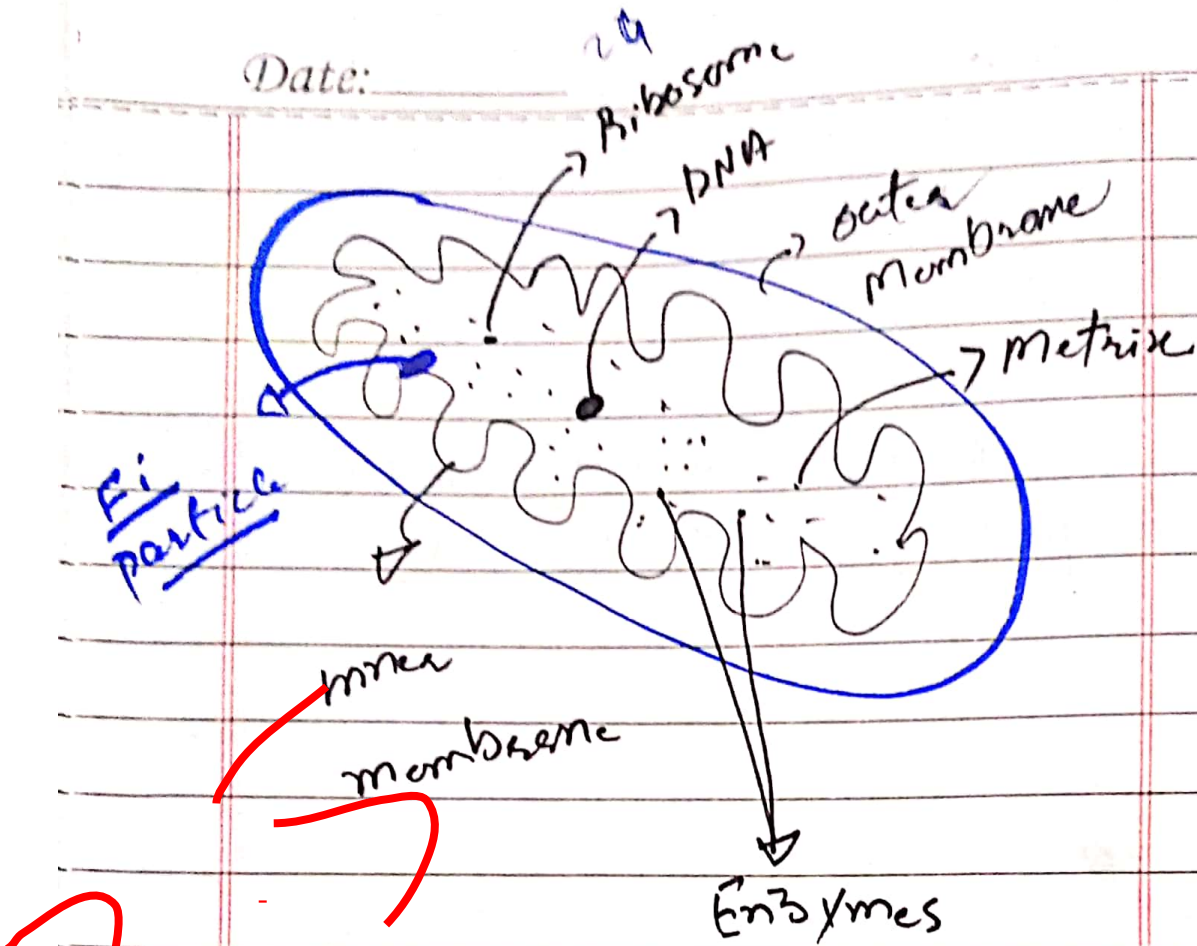 Date:
24
Ribosome
DNA
outer
membrane
Metrix
F1
particle
inner
membrane
Enzymes